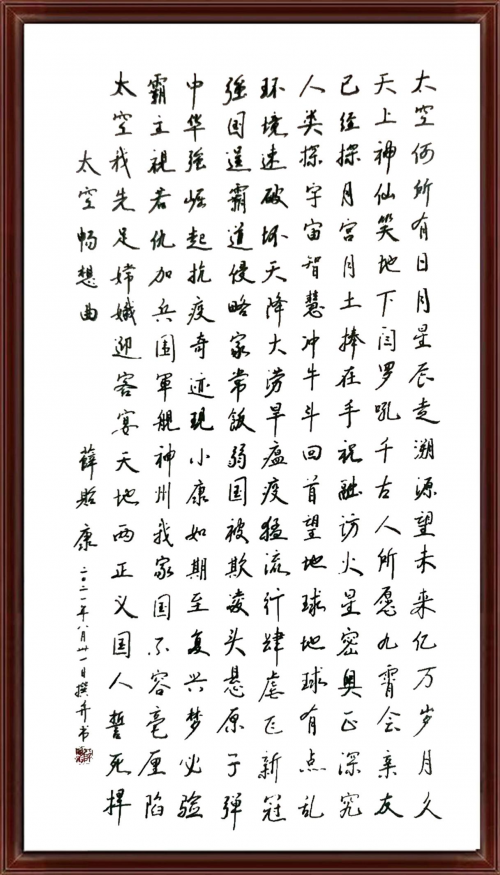 太空何所有日月星辰走溯源望未来亿万岁月久
天上神仙笑地下闫罗吼千古人所愿九霄会亲友
已经探月宫月土捧在手祝融访火星密奥正深究
人类探宇宙智慧冲牛斗回首望地球地球有点乱
环境速破坏天降大涝旱瘟疫猛流行肆虐飞新冠
強国逞霸道侵略家常飯弱国被欺凌头悬原子弹
中华强崛起抗疫奇迹现小康如期至复兴梦必验
霸主視若仇加兵围軍舰神州我家国不容毫厘陷
太空我先足嫦娥迎客宴天地两正义国人誓死捍
太空畅想曲 薛贻康 二〇二一年八月卅一日撰并书